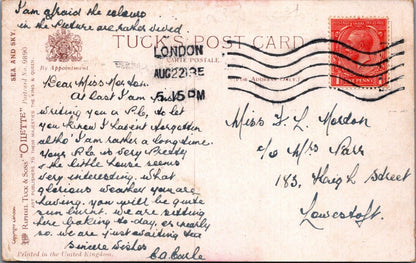 I am afraid the colours
in the Picture are rather vivid
TUCK'S POST CARD
CARTE POSTALE
By Appointment
FOR ADDRESS ONLY
LONDON
AUG 22
5.15 PM
SEA AND SKY.
Postcard No.
RAPHAEL TUCK & SONS' "OILETTE"
ART PUBLISHERS TO THEIR MAJESTIES THE KING & QUEEN.
Copyright
Printed in the United Kingdom.
Dear Miss Mordon.
At last I am
writing you a P.C, to let
you know I havent forgotten
altho' I am rather a long time.
Your P.C is very Pretty
& the little house seems
very interesting. What
glorious weather you are
having. you will be quite
sun burnt. we are
baking to day or nearly
so. we are just waiting tea
sincere wishes
Miss F. L. Mordon
c/o Mrs Parr
183, High Street
Lowestoft.